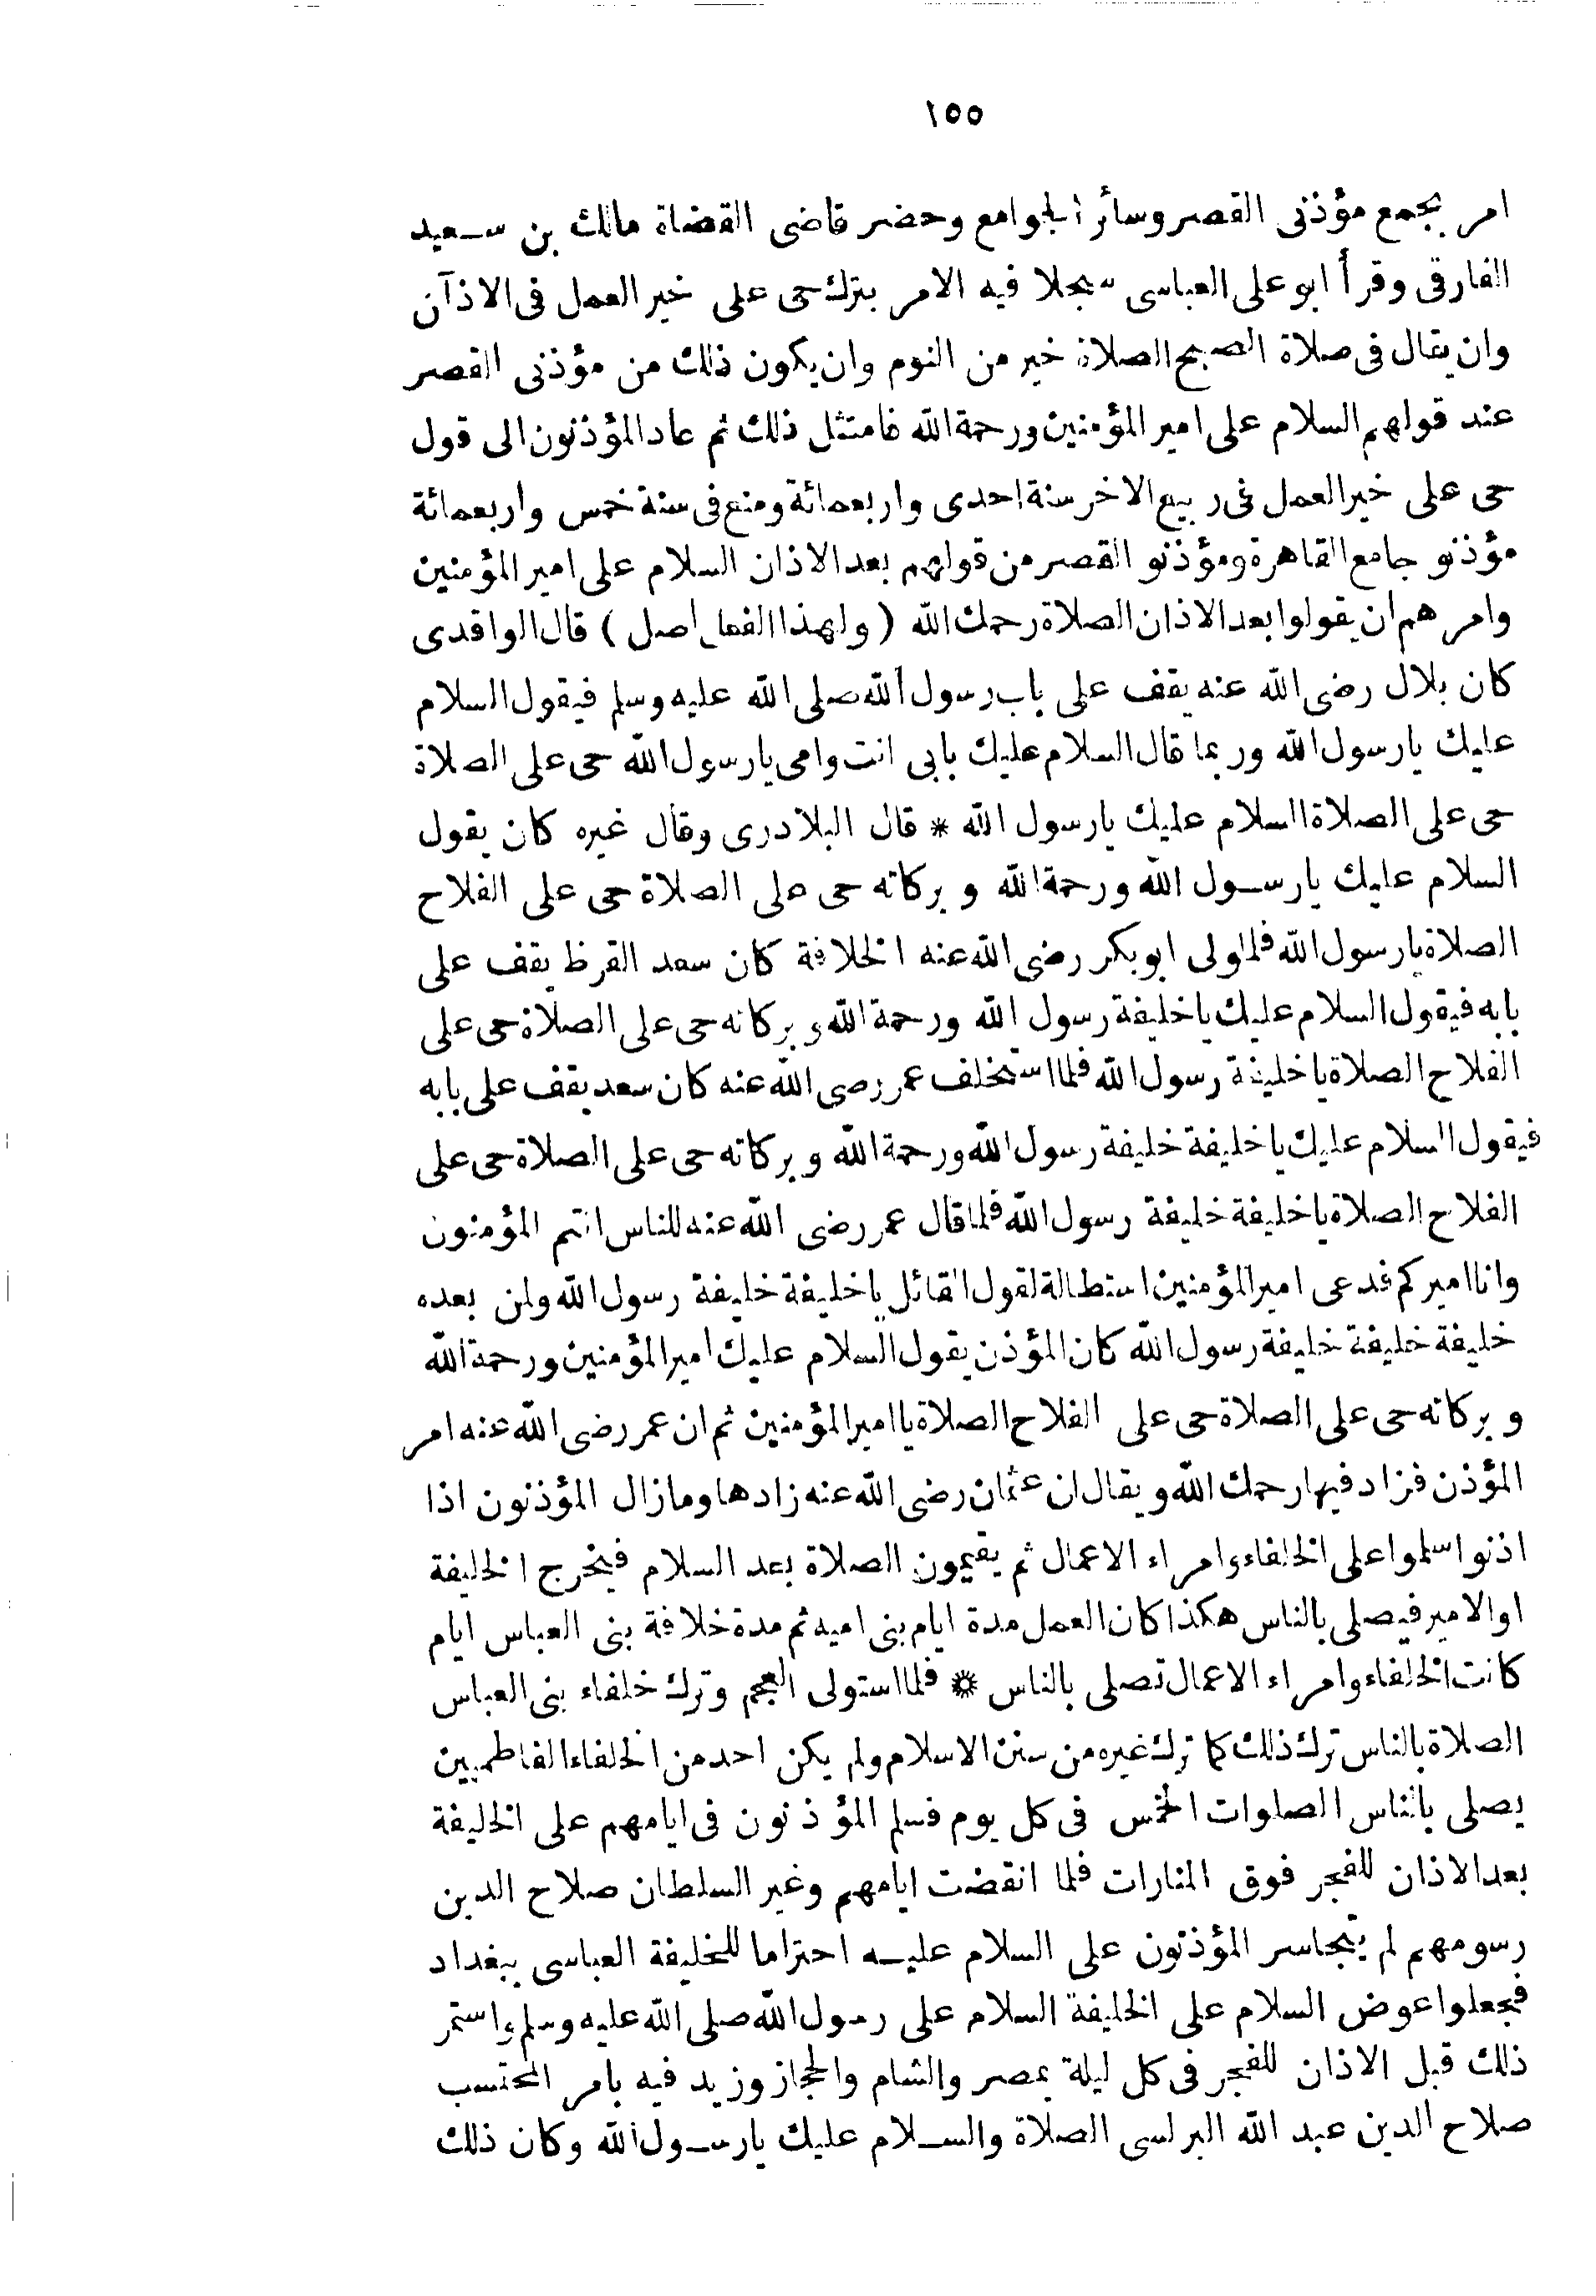 ١٥٥
امر بجمع مؤذنى القصر وسائر الجوامع وحضر قاضى القضاة مالك بن سعيد
الفارقى وقرأ ابو على العباسى سجلا فيه الامر بترك حى على خير العمل فى الاذآن
وان يقال فى صلاة الصبح الصلاة خير من النوم وان يكون ذلك من مؤذنى القصر
عند قولهم السلام على امير المؤمنين ورحمة الله فامتثل ذلك ثم عاد المؤذنون الى قول
حى على خير العمل فى ربيع الاخر سنة احدى واربعمائة ومنع فى سنة خمس واربعمائة
مؤذنو جامع القاهرة ومؤذنو القصر من قولهم بعد الاذان السلام على امير المؤمنين
وامرهم ان يقولوا بعد الاذان الصلاة رحمك الله ( ولهذا الفعل اصل ) قال الواقدى
كان بلال رضى الله عنه يقف على باب رسول الله صلى الله عليه وسلم فيقول السلام
عليك يا رسول الله وربما قال السلام عليك بابى انت وامى يا رسول الله حى على الصلاة
حى على الصلاة السلام عليك يا رسول الله * قال البلادرى وقال غيره كان يقول
السلام عليك يا رسول الله ورحمة الله وبركاته حى على الصلاة حى على الفلاح
الصلاة يا رسول الله فلما ولى ابو بكر رضى الله عنه الخلافة كان سعد القرظ يقف على
بابه فيقول السلام عليك يا خليفة رسول الله ورحمة الله وبركاته حى على الصلاة حى على
الفلاح الصلاة يا خليفة رسول الله فلما استخلف عمر رضى الله عنه كان سعد يقف على بابه
فيقول السلام عليك يا خليفة خليفة رسول الله ورحمة الله وبركاته حى على الصلاة حى على
الفلاح الصلاة يا خليفة خليفة رسول الله فلما قال عمر رضى الله عنه للناس انتم المؤمنون
وانا اميركم فدعى امير المؤمنين استطالة لقول القائل يا خليفة خليفة رسول الله ولمن بعده
خليفة خليفة خليفة رسول الله كان المؤذن يقول السلام عليك امير المؤمنين ورحمة الله
وبركاته حى على الصلاة حى على الفلاح الصلاة يا امير المؤمنين ثم ان عمر رضى الله عنه امر
المؤذن فزاد فيها رحمك الله ويقال ان عثمان رضى الله عنه زادها وما زال المؤذنون اذا
اذنوا سلموا على الخلفاء وامراء الاعمال ثم يقيمون الصلاة بعد السلام فيخرج الخليفة
او الامير فيصلى بالناس هكذا كان العمل مدة ايام بنى اميه ثم مدة خلافة بنى العباس ايام
كانت الخلفاء وامراء الاعمال تصلى بالناس * فلما استولى العجم وترك خلفاء بنى العباس
الصلاة بالناس ترك ذلك كما ترك غيره من سنن الاسلام ولم يكن احد من الخلفاء الفاطميين
يصلى بالناس الصلوات الخمس فى كل يوم فسلم المؤذنون فى ايامهم على الخليفة
بعد الاذان للفجر فوق المنارات فلما انقضت ايامهم وغير السلطان صلاح الدين
رسومهم لم يتجاسر المؤذنون على السلام عليه احتراما للخليفة العباسى ببغداد
فجعلوا عوض السلام على الخليفة السلام على رسول الله صلى الله عليه وسلم واستمر
ذلك قبل الاذان للفجر فى كل ليلة بمصر والشام والحجاز وزيد فيه بامر المحتسب
صلاح الدين عبد الله البرلسى الصلاة والسلام عليك يا رسول الله وكان ذلك